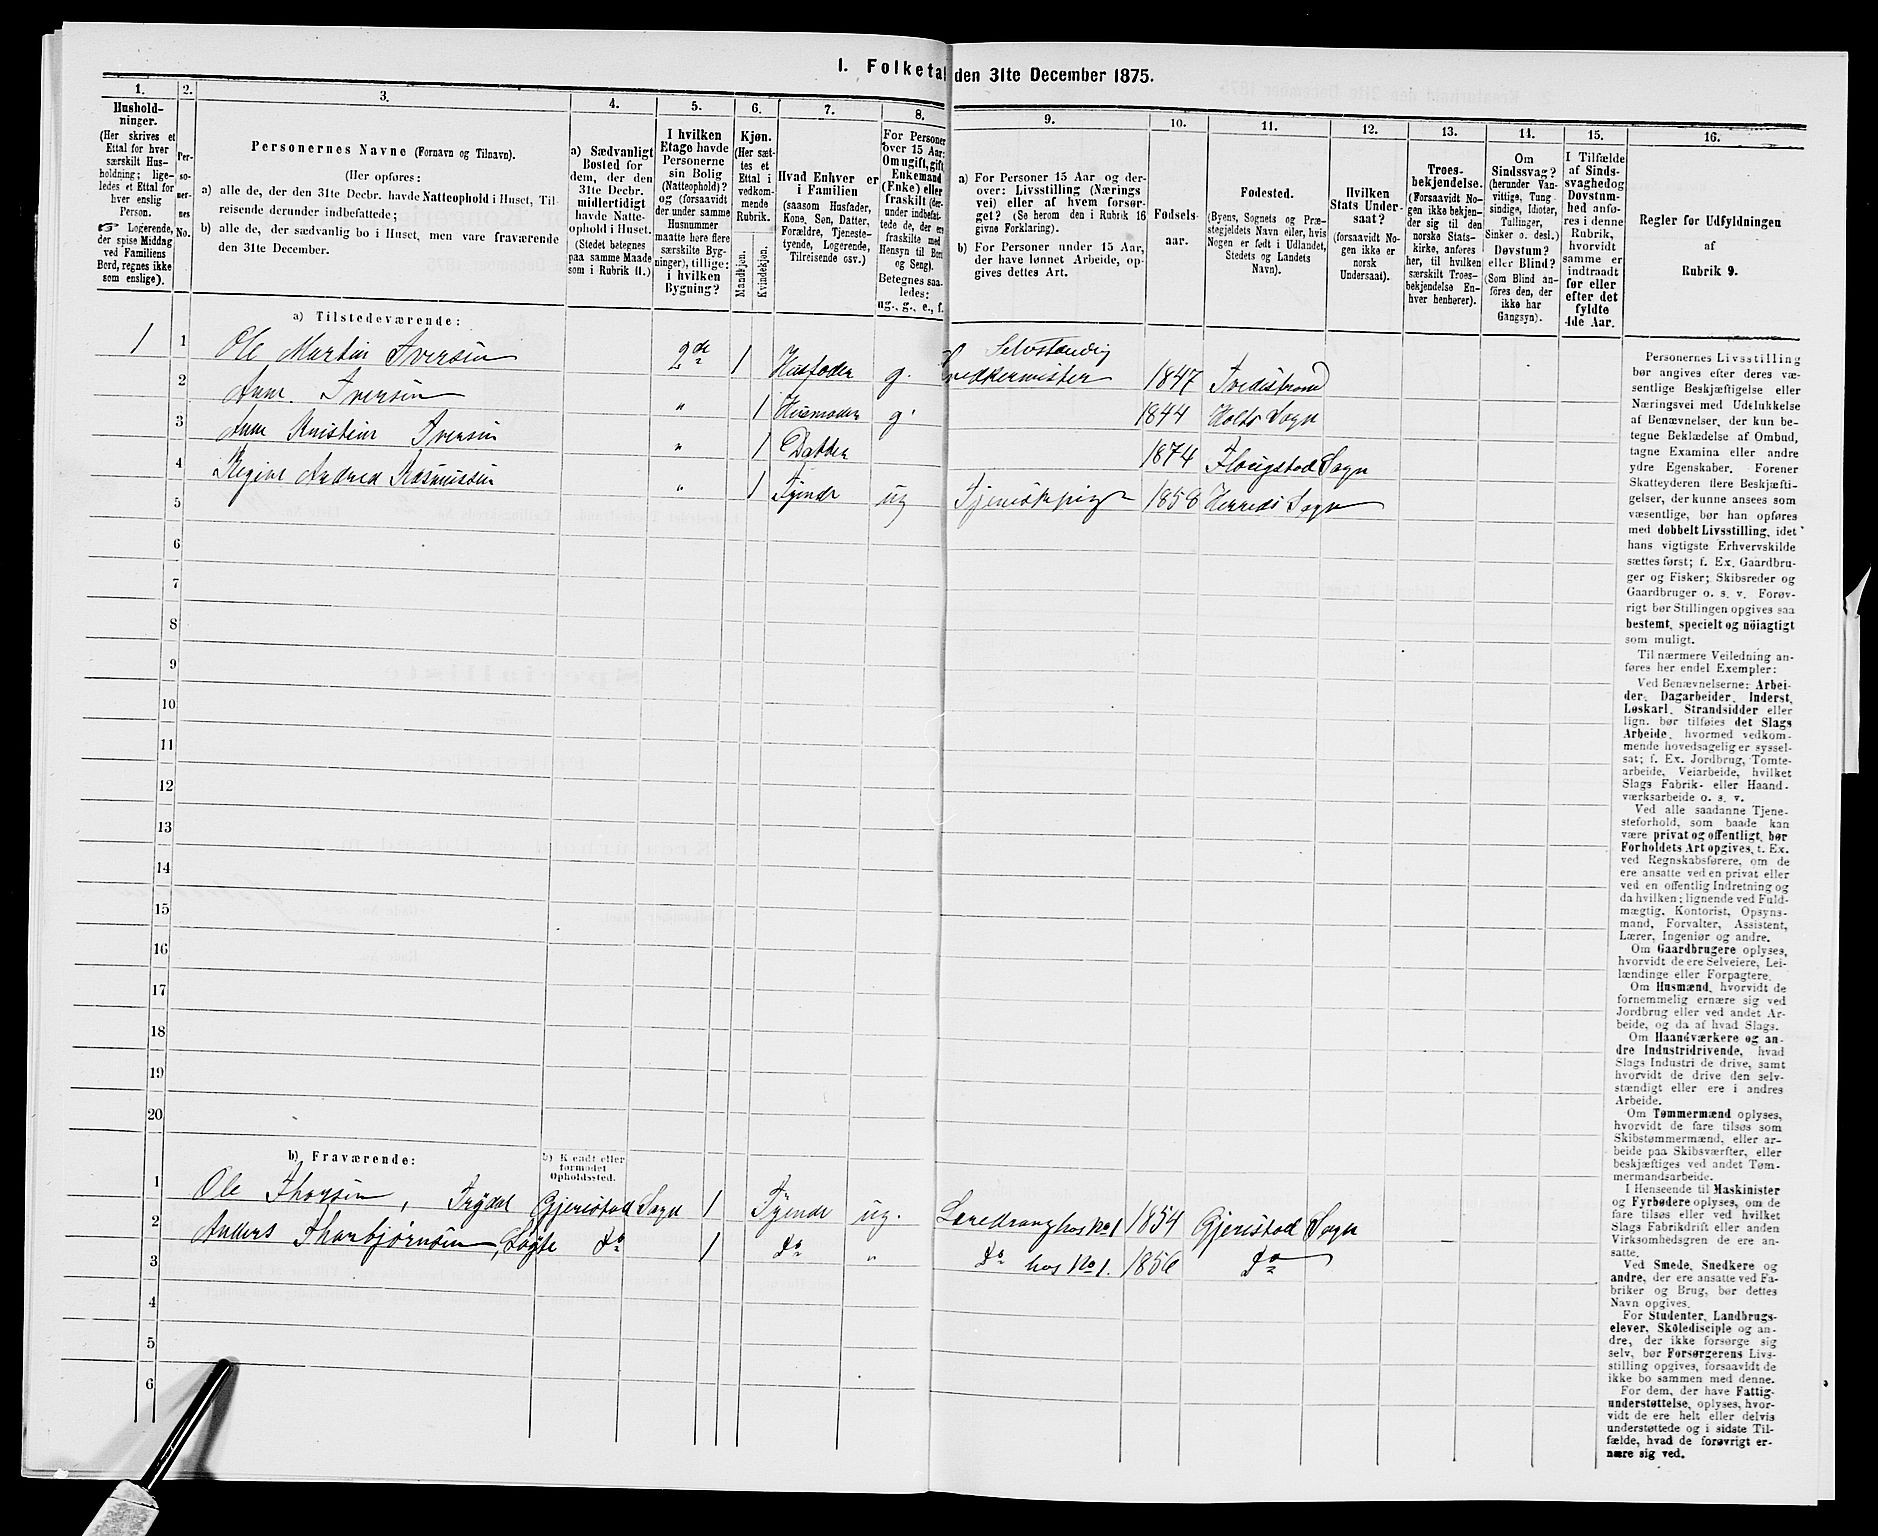 I. Folketal den 31te December 1875.
1.
Hushold-
ninger.
(Her skrives et
Ettal for hver
særskilt Hus-
holdning; lige-
ledes et Ettal for
hver enslig
Person.
☞ Logerende,
der spise Middag
ved Familiens
Bord, regnes ikke
som enslige).
2.
Per-
so-
ner-
nes
No.
3.
Personernes Navne (Fornavn og Tilnavn).
(Her opføres:
a) alle de, der den 31te Decbr. havde Natteophold i Huset, Til-
reisende derunder indbefattede;
b) alle de, der sædvanlig bo i Huset, men vare fraværende
den 31te December.
4.
a) Sædvanligt
Bosted for
dem, der den
31te Decbr.
midlertidigt
havde Natte-
ophold i Huset.
(Stedet betegnes
paa samme Maade
som i Rubrik 11.)
5.
I hvilken
Etage havde
Personerne
sin Bolig
(Natteophold)?
og (forsaavidt
der under samme
Husnummer
maatte høre flere
særskilte Byg-
ninger), tillige:
i hvilken
Bygning?
6.
Kjøn.
(Her sæt-
tes et
Ettal i
vedkom-
mende
Rubrik.
Mandkjøn.
Kvindekjøn.
7.
Hvad Enhver er
i Familien
(saasom Husfader,
Kone, Søn, Datter,
Forældre, Tjeneste-
tyende, Logerende,
Tilreisende osv.)
8.
For Personer
over 15 Aar:
Om ugift, gift,
Enkemand
(Enke) eller
fraskilt (der-
under indbefat-
tede de, der ere
fraskilte med
Hensyn til Bord
og Seng).
Betegnes saa-
ledes:
ug., g., e., f.
9.
a) For Personer 15 Aar og der-
over: Livsstilling (Nærings
vei) eller af hvem forsør-
get? (Se herom den i Rubrik 16
givne Forklaring).
b) For Personer under 15 Aar,
der have lønnet Arbeide, op-
gives dettes Art.
10.
Fødsels-
aar.
11.
Fødested.
(Byens, Sognets og Præ-
stegjeldets Navn eller, hvis
Nogen er født i Udlandet,
Stedets og Landets
Navn).
12.
Hvilken
Stats Under-
saat?
(forsaavidt No-
gen ikke er
norsk
Undersaat).
13.
Troes-
bekjendelse.
(Forsaavidt No-
gen ikke bekjen-
der sig til den
norske Stats-
kirke, anføres
her, til hvilken
særskilt Troes-
bekjendelse En-
hver henhører).
14.
Om
Sindssvag?
(herunder Van-
vittige, Tung-
sindige, Idioter,
Tullinger,
Sinker o. desl.)
Døvstum?
eller Blind?
(Som Blind an-
føres den, der
ikke har
Gangsyn).
15.
I Tilfælde
af Sinds-
svaghed og
Døvstum-
hed anfø-
res i denne
Rubrik,
hvorvidt
samme er
indtraadt
før eller
efter det
fyldte
4de Aar.
16.
Regler før Udfyldningen
af
Rubrik 9.
a) Tilstedeværende:
1 1 Ole Martin Iversen 2den 1 Husfader g. Selvstændig
Snedkermester 1847 Tvedestrand
2 Anne Iversen " 1 Husmoder g. 1844 Holts Sogn
3 Anne Kristine Iversen " 1 Datter 1874 Flougstad Sogn
4 Regine Andrea Rasmussen " 1 Tyende ug Tjenestepige 1858 Herreds Sogn
5
6
7
8
9
10
11
12
13
14
15
16
17
18
19
20
b) Fraværende:
b) Kjendt eller
formodet
Opholdssted.
1 Ole Thorsen, Trydal Gjerestad Sogn 1 Tyende ug. Læredreng hos No 1 1854 Gjerestad Sogn
2 Anders Thorbjørnsen, Løite Do 1 Do " Do hos No 1. 1856 Do
3
4
5
6
Personernes Livsstilling
bør angives efter deres væ-
sentlige Beskjæftigelse eller
Næringsvei med Udelukkelse
af Benævnelser, der kun be-
tegne Beklædelse af Ombud,
tagne Examina eller andre
ydre Egenskaber. Forener
Skatteyderen flere Beskjæfti-
gelser, der kunne ansees som
væsentlige, bør han opføres
med dobbelt Livsstilling, idet
hans vigtigste Erhvervskilde
sættes først; f. Ex. Gaardbru-
ger og Fisker; Skibsreder og
Gaardbruger o. s. v. Forøv-
rigt bør Stillingen opgives saa
bestemt, specielt og nöiagtigt
som muligt.
Til nærmere Veiledning an-
føres her endel Exempler:
Ved Benævnelserne: Arbei-
der, Dagarbeider, Inderst,
Løskarl, Strandsidder eller
lign. bør tilføies det Slags
Arbeide, hvormed vedkom-
mende hovedsagelig er syssel-
sat; f. Ex. Jordbrug, Tomte-
arbeide, Veiarbeide, hvilket
Slags Fabrik- eller Haand-
værksarbeide o. s. v.
Ved alle saadanne Tjene-
steforhold, som baade kan
være privat og offentligt, bør
Forholdets Art opgives, t. Ex.
ved Regnskabsførere, om de
ere ansatte ved en privat eller
ved en offentlig Indretning og
da hvilken; lignende ved Fuld-
mægtig, Kontorist, Opsyns-
mand, Forvalter, Assistent,
Lærer, Ingeniør og andre.
Om Gaardbrugere oplyses,
hvorvidt de ere Selveiere, Lei-
lændinge eller Forpagtere.
Om Husmænd, hvorvidt de
fornemmelig ernære sig ved
Jordbrug eller ved andet Ar-
beide, og da af hvad Slags.
Om Haandværkere og an-
dre Industridrivende, hvad
Slags Industri de drive, samt
hvorvidt de drive den selv-
stændigt eller ere i andres
Arbeide.
Om Tømmermænd oplyses,
hvorvidt de fare tilsøs som
Skibstømmermænd, eller ar-
beide paa Skibsværfter, eller
beskjæftiges ved andet Tøm-
mermandsarbeide.
I Henseende til Maskinister
og Fyrbødere oplyses, om de
fare tilsøs eller ved hvilket
Slags Fabrikdrift eller anden
Virksomhedsgren de ere an-
satte.
Ved Smede, Snedkere og
andre, der ere ansatte ved Fa-
briker og Brug, bør dettes
Navn opgives.
For Studenter, Landbrugs-
elever, Skoledisciple og an-
dre, der ikke forsørge sig
selv, bør Forsørgerens Livs-
stilling opgives, forsaavidt de
ikke bo sammen med denne.
For dem, der have Fattig-
understøttelse, oplyses, hvor-
vidt de ere helt eller delvis
understøttede og i sidste Til-
fælde, hvad de forøvrigt er-
nære sig ved.